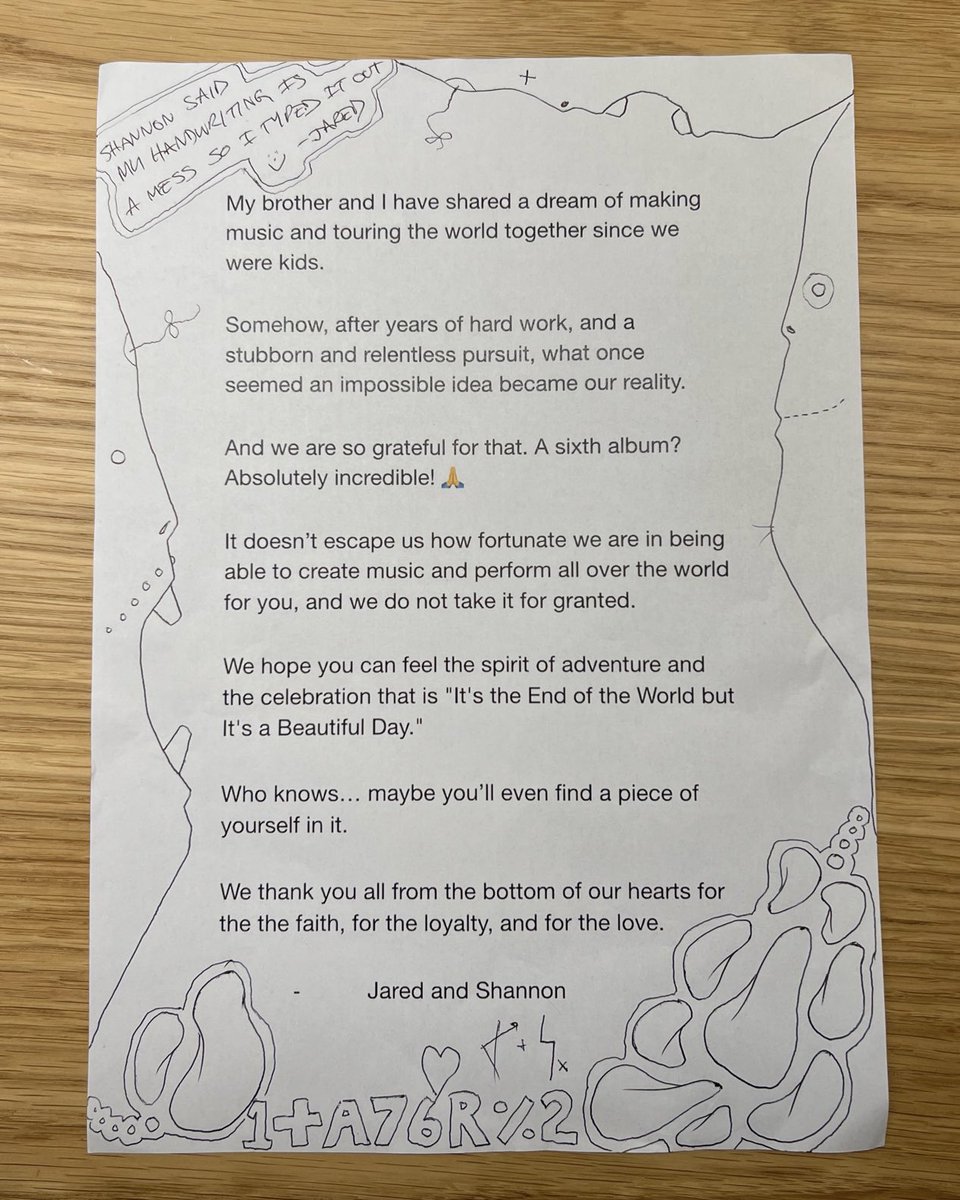 SHANNON SAID
MY HANDWRITING IS
A MESS SO I TYPED IT OUT
-JARED
My brother and I have shared a dream of making
music and touring the world together since we
were kids.
Somehow, after years of hard work, and a
stubborn and relentless pursuit, what once
seemed an impossible idea became our reality.
And we are so grateful for that. A sixth album?
Absolutely incredible! 🙏
It doesn’t escape us how fortunate we are in being
able to create music and perform all over the world
for you, and we do not take it for granted.
We hope you can feel the spirit of adventure and
the celebration that is "It's the End of the World but
It's a Beautiful Day."
Who knows… maybe you’ll even find a piece of
yourself in it.
We thank you all from the bottom of our hearts for
the the faith, for the loyalty, and for the love.
- Jared and Shannon
1+A76R%2